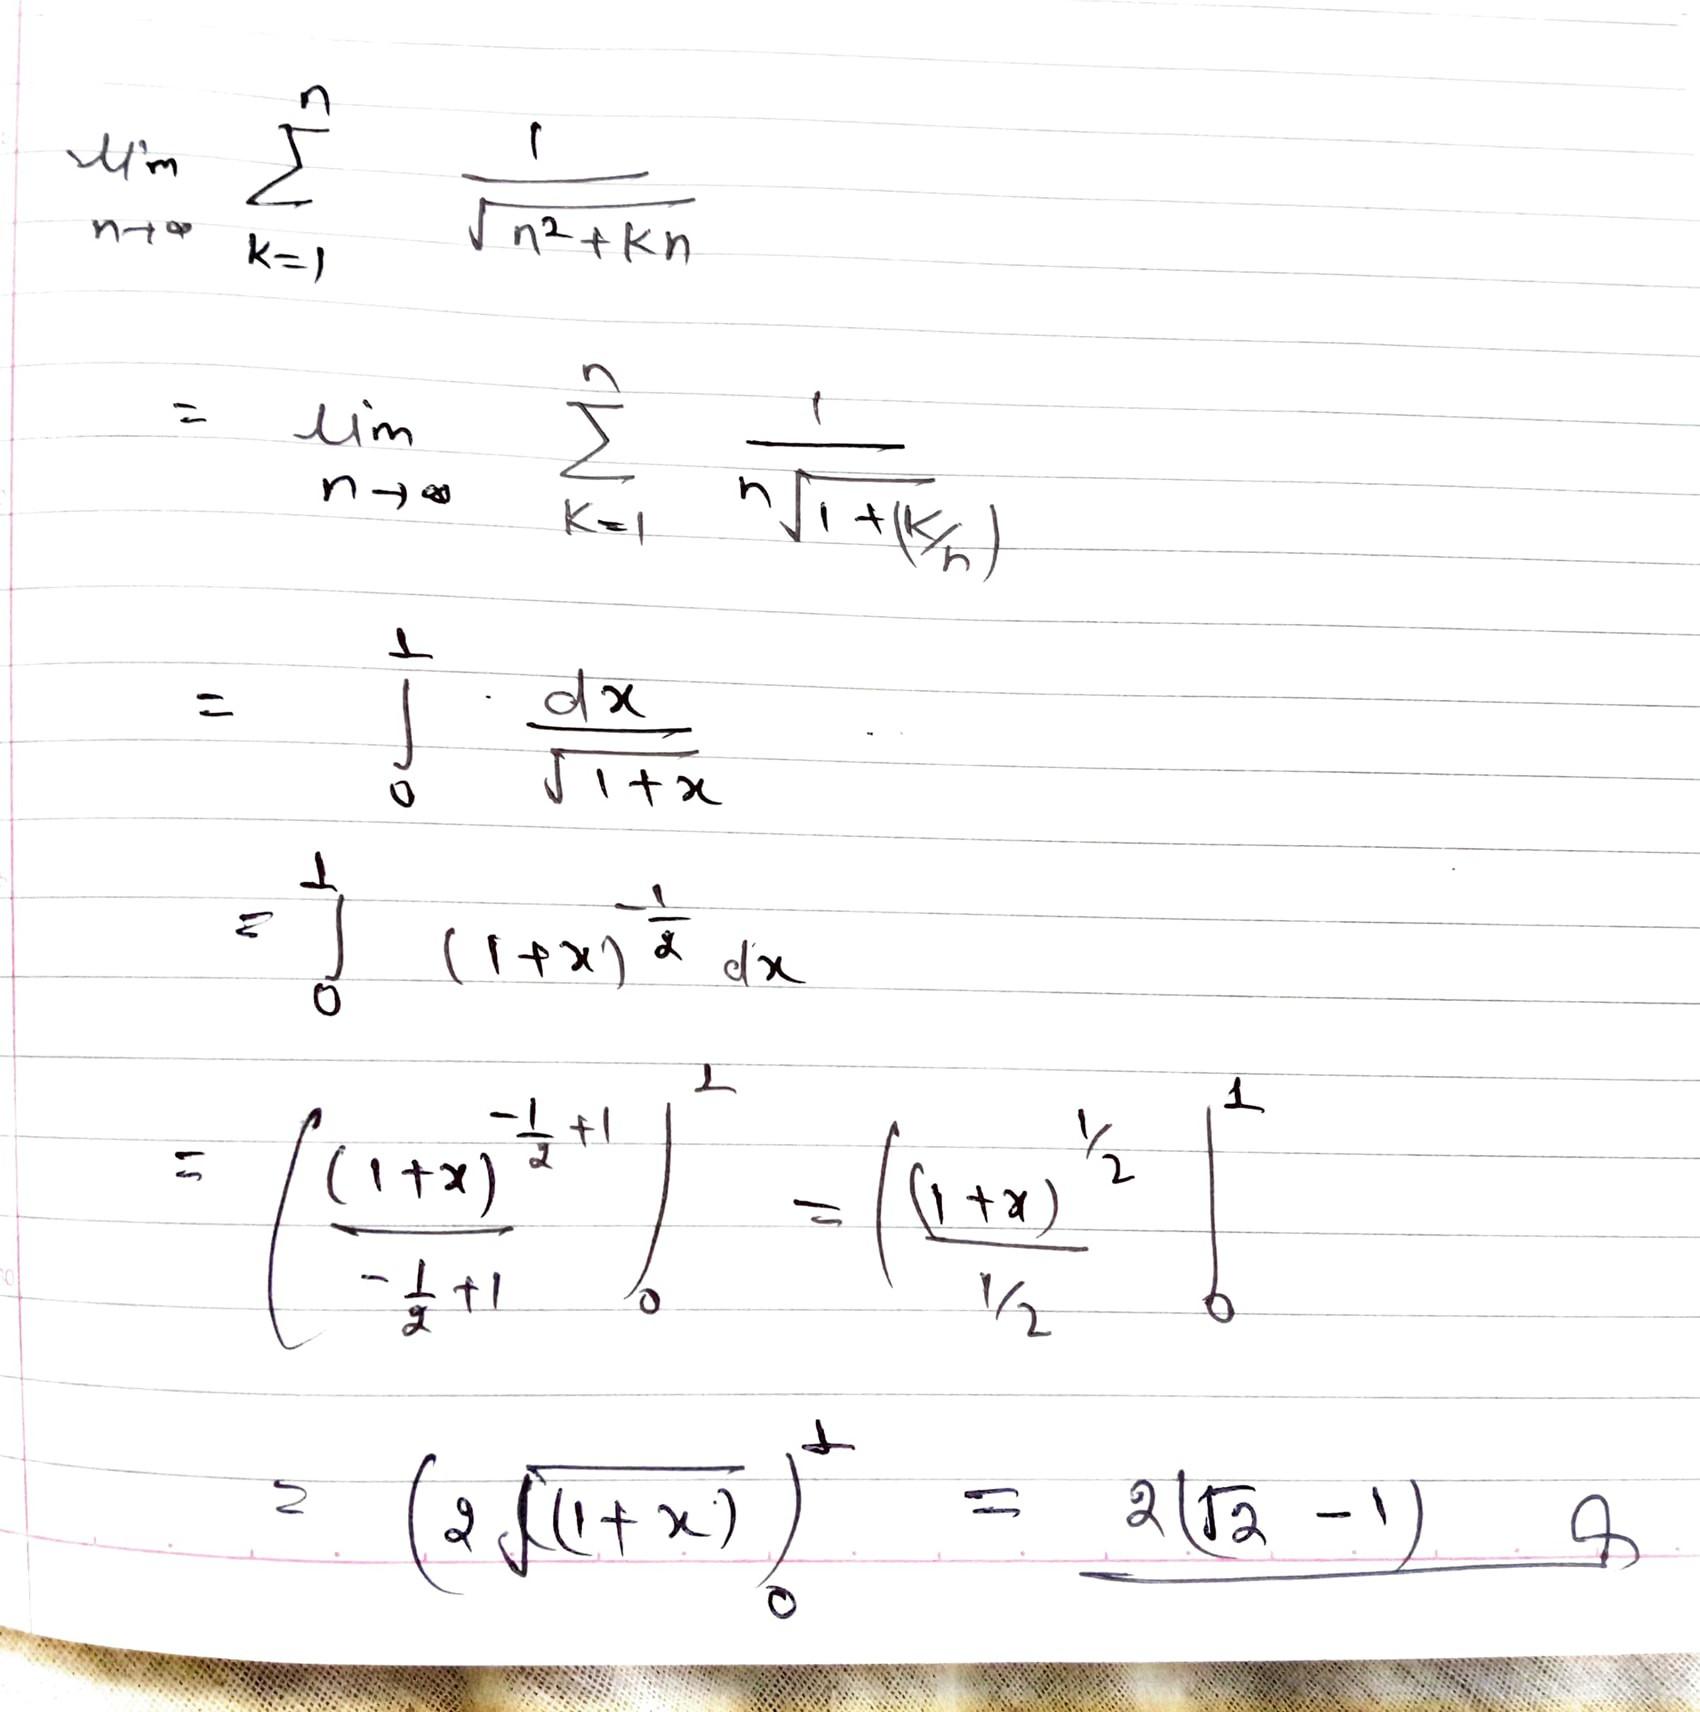 lim n→∞ ∑ k=1 n 1/√(n² + kn)
= lim n→∞ ∑ K=1 n 1/(n√(1+(K/n)))
= ∫ 0 1 dx/√(1+x)
= ∫ 0 1 (1+x)^(-1/2) dx
= ( (1+x)^(-1/2 +1) / (-1/2 +1) ) 0 1 = ( (1+x)^(1/2) / (1/2) | 0 1
= (2√((1+x)) ) 0 1 = 2(√2 -1)